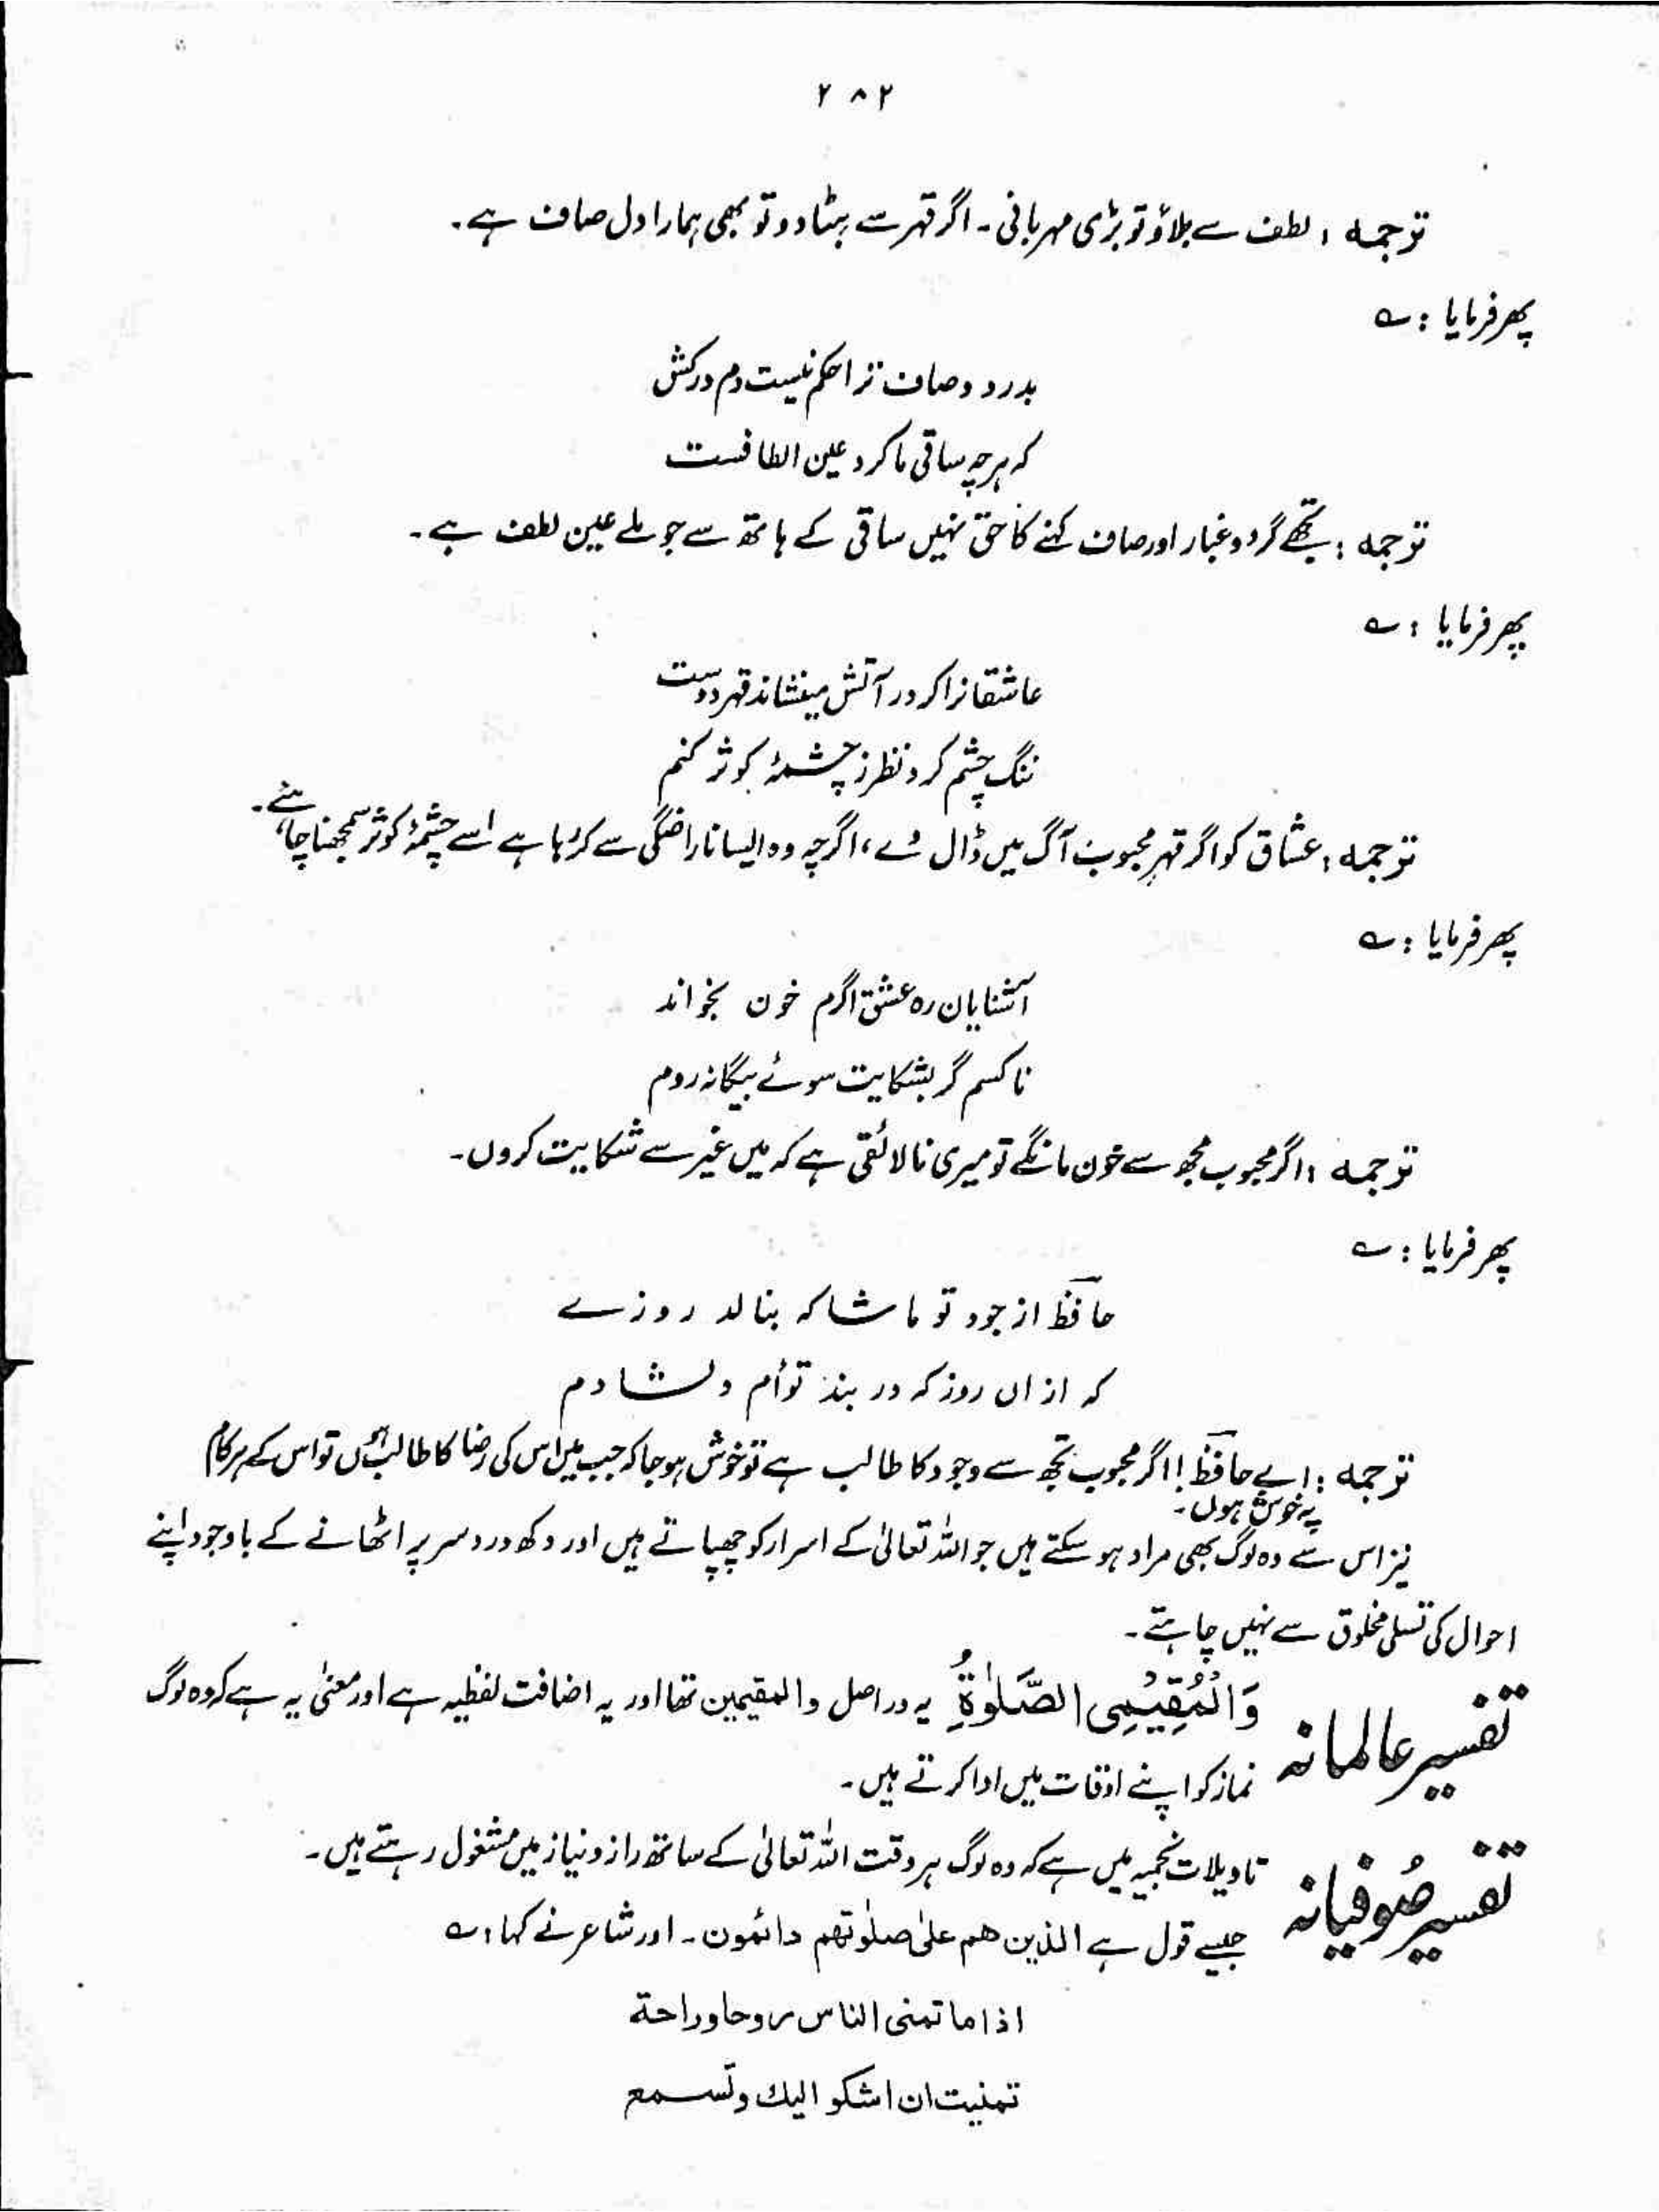 ۲۸۲
ترجمہ : لطف سے بلاؤ تو بڑی مہربانی ۔ اگر قہر سے ہٹا دو تو بھی ہمارا دل صاف ہے ۔
پھر فرمایا : ؎
بدرد و صاف ترا حکم نیست دم درکش
کہ ہرچہ ساقی ما کرد عین الطافست
ترجمہ : تجھے گرد و غبار اور صاف کہنے کا حق نہیں ساقی کے ہاتھ سے جو ملے عین لطف ہے ۔
پھر فرمایا : ؎
عاشقانرا کر در آتش مینشاند قہر دوست
تنگ چشم کر د نظر ز چشمۂ کوثر کنم
ترجمہ : عشاق کو اگر قہرِ محبوب آگ میں ڈال دے ، اگرچہ وہ ایسا ناراضگی سے کر رہا ہے اسے چشمۂ کوثر سمجھنا چاہئے ۔
پھر فرمایا : ؎
آشنایان رہ عشق اگرم خون بخواند
ناکسم گر بشکایت سوئے بیگانہ روم
ترجمہ : اگر محبوب مجھ سے خون مانگے تو میری نالائقی ہے کہ میں غیر سے شکایت کروں ۔
پھر فرمایا : ؎
حافظؔ از جود تو ماشا کہ بنالد روزے
کہ ازاں روز کہ در بند توأم دلشادم
ترجمہ : اے حافظؔ ! اگر محبوب تجھ سے وجود کا طالب ہے تو خوش ہو جا کہ جب میں اس کی رضا کا طالب ہوں تو اس کے ہر کام
پہ خوش ہوں ۔
نیز اس سے وہ لوگ بھی مراد ہو سکتے ہیں جو اللہ تعالیٰ کے اسرار کو چھپاتے ہیں اور دکھ درد سر پر اٹھانے کے باوجود اپنے
احوال کی تسلی مخلوق سے نہیں چاہتے ۔
تفسیر عالمانہ وَالْمُقِیْمِی الصَّلٰوۃِ یہ دراصل والمقیمین تھا اور یہ اضافت لفظیہ ہے اور معنیٰ یہ ہے کہ وہ لوگ
نماز کو اپنے اوقات میں ادا کرتے ہیں ۔
تفسیر صُوفیانہ تاویلات نجمیہ میں ہے کہ وہ لوگ ہر وقت اللہ تعالیٰ کے ساتھ راز و نیاز میں مشغول رہتے ہیں ۔
جیسے قول ہے الذین ھم علیٰ صلٰوتھم دائمون ۔ اور شاعر نے کہا : ؎
اذا ما تمنی الناس روحا وراحة
تمنیت ان اشکو الیك وتسمع